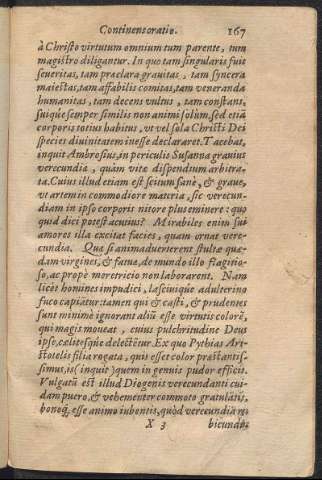 Continens oratio. 167
à Christo virtutum omnium tum parente, tum
magistro diligantur. In quo tam singularis fuit
seueritas, tam praeclara grauitas, tam syncera
maiestas, tam affabilis comitas, tam veneranda
humanitas, tam decens vultus, tam constans,
suique semper similis non animi solùm, sed etiã
corporis totius habitus, vt vel sola Christi Dei
species diuinitatem inesse declararet. Tacebat,
inquit Ambrosius, in periculis Susanna grauius
verecundiæ, quàm vitæ dispendium arbitra-
ta. Cuius illud etiam est scitum sanè, & graue,
vt artem in commodiore materia, sic verecun-
diam in ipso corporis nitore plus eminere: quo
quid dici potest acutius? Mirabiles enim sui
amores illa excitat facies, quam ornat vere-
cundia. Quæ si animaduerterent stultæ quæ-
dam virgines, & fatuæ, de mundo illo flagitio-
so, ac propè meretricio non laborarent. Nam
licèt homines impudici, lasciuiqúe adulterino
fuco capiatur: tamen qui & casti, & prudentes
sunt minimè ignorant aliũ esse virtutis colorẽ,
qui magis moueat, cuius pulchritudine Deus
ipse, cælitesq́ue delectẽtur. Ex quo Pythias Ari-
stotelis filia rogata, quis esset color præstantis-
simus, is (inquit) quem in genuis pudor efficit.
Vulgatũ est illud Diogenis verecundanti cui-
dam puero, & vehementer commoto gratulãtis,
bonoq́; esse animo iubentis, quòd verecundia ru-
X 3 bicundo